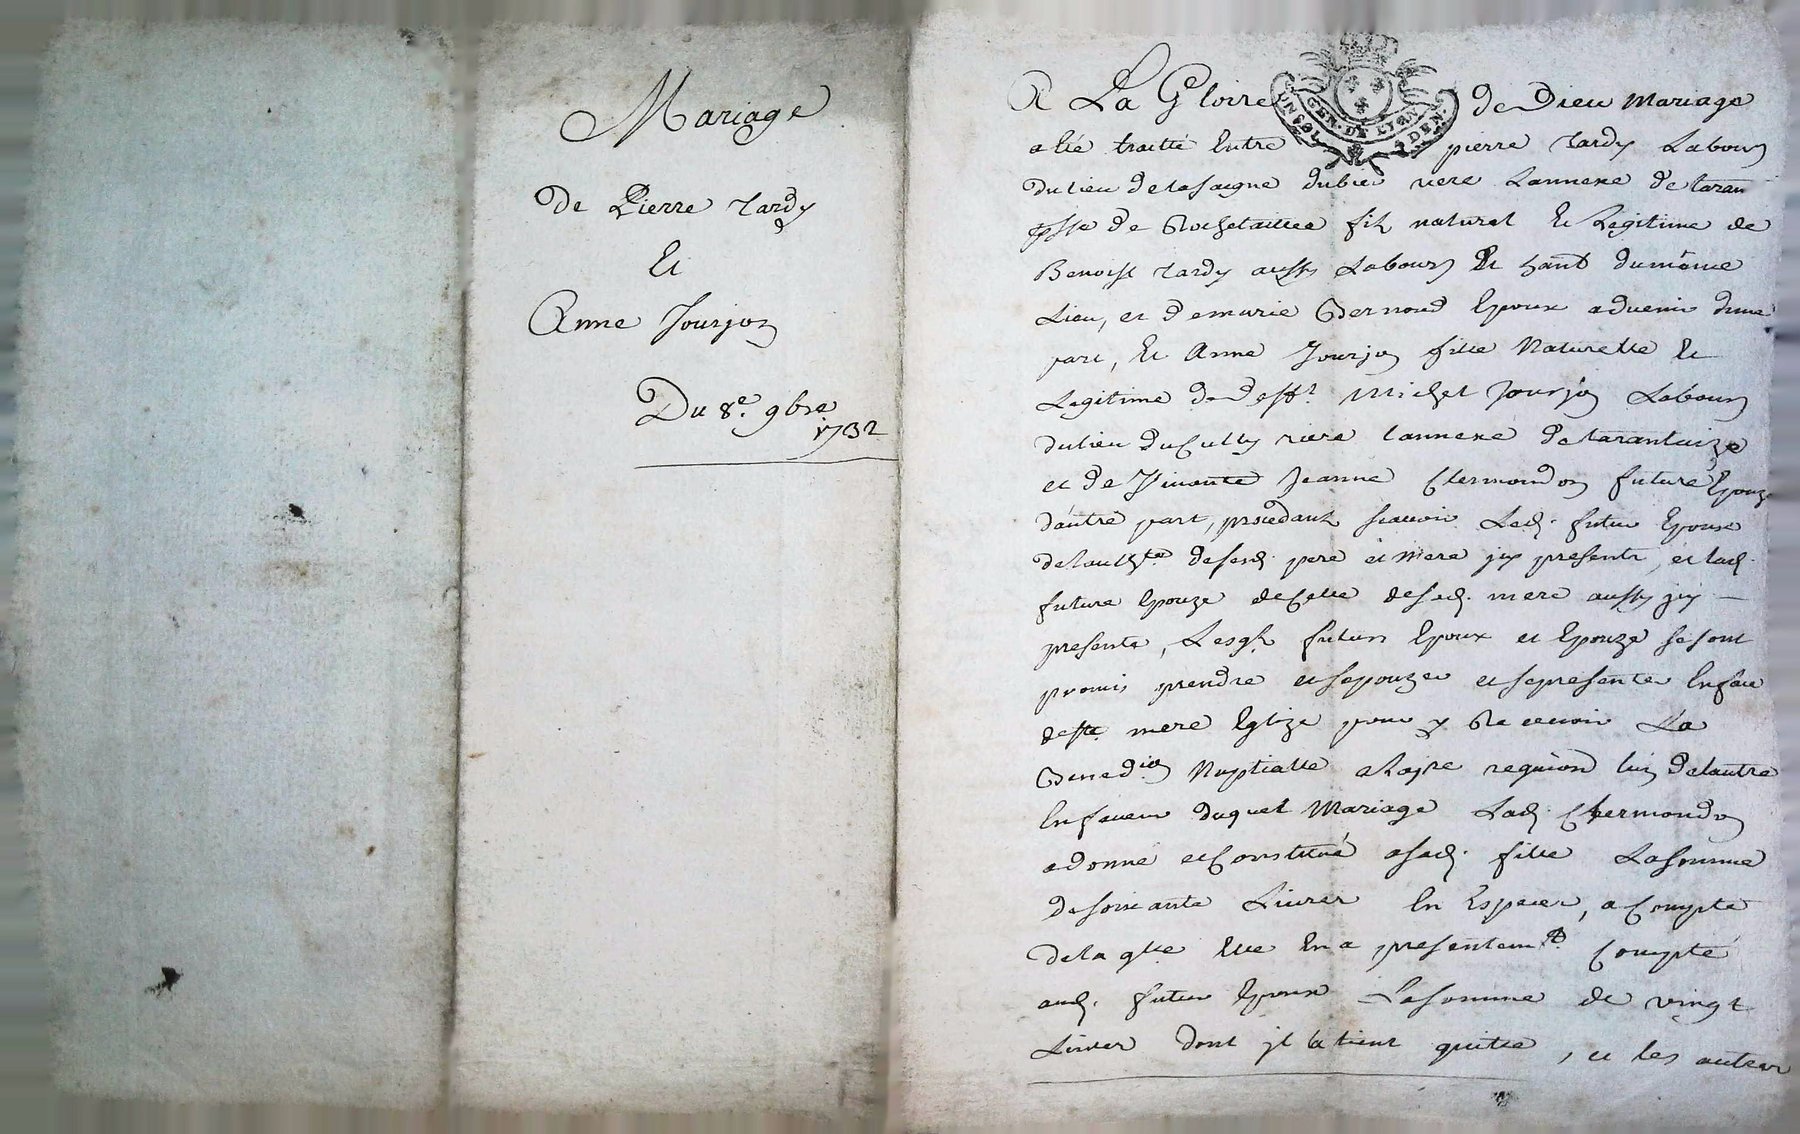 Mariage
De Pierre Tardy
Et
Anne Jourjon
Du 8e. 9bre
1732
A La Gloire de Dieu Mariage
a été traitté Entre pierre Tardy Labour
du lieu delasaigne du riere Lannexe de taran
psse de Rochetaillee fils naturel Et Legitime de
Benoist Tardy aussy Labour Et hant dumême
Lieu, et demarie Bernoud Epoux advenir dune
part, Et Anne Jourjon fille Naturelle Et
Legitime de defft. Michel Jourjon Labour
dulieu ducully riere Lannexe detarantaize
et de Vivante Jeanne Clermondon future Epouze
dautre part, procedant scavoir Led. futur Epoux
delauthte. desesd. pere et mere jcy presents, et lad.
future Epouze decelle desad. mere aussy jcy
presente, Lesqls futurs Epoux et Epouze sesont
promis prendre etsepouzer etsepresenter Enface
deste mere Eglize pour y Recevoir La
Benedion Nuptialle alapre requion lun delautre
Enfaveur duquel Mariage Lad. Clermondon
adonné etConstitué asad. fille Lasomme
desoixante Livres En Especes, aCompte
delaqlle Elle En a presentemt. Compté
aud. futur Epoux Lasomme de vingt
Livres dont jl latient quitte, et les autres